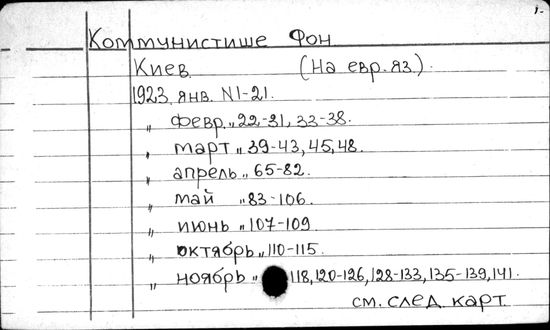 1.
Коммунистише Фон
Киев (На евр. яз.)
1923, янв. N1-21.
" февр. " 22-31, 33-38.
" март " 39-43, 45, 48.
" апрель " 65-82.
" май " 83-106.
" июнь " 107-109
" октябрь " 110-115.
" ноябрь " 118, 120-126, 128-133, 135-139, 141.
см. след. карт.